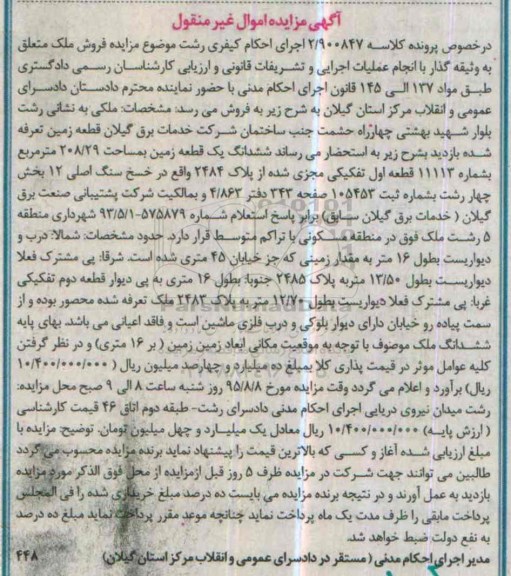 آگهی مزایده اموال غیر منقول
درخصوص پرونده کلاسه ۲/۹۰۰۸۴۷ اجرای احکام کیفری رشت موضوع مزایده فروش ملک متعلق
به وثیقه گذار با انجام عملیات اجرایی و تشریفات قانونی و ارزیابی کارشناسان رسمی دادگستری
طبق مواد ۱۳۷ الی ۱۴۵ قانون اجرای احکام مدنی با حضور نماینده محترم دادستان دادسرای
عمومی و انقلاب مرکز استان گیلان به شرح زیر به فروش می رسد: مشخصات: ملکی به نشانی رشت
بلوار شهید بهشتی چهارراه حشمت جنب ساختمان شرکت خدمات برق گیلان قطعه زمین تعرفه
شده بازدید بشرح زیر به استحضار می رساند ششدانگ یک قطعه زمین بمساحت ۲۰۸/۲۹ مترمربع
بشماره ۱۱۱۱۳ قطعه اول تفکیکی مجزی شده از پلاک ۲۴۸۴ واقع در خسخ سنگ اصلی ۱۲ بخش
چهار رشت بشماره ثبت ۱۰۵۴۵۳ صفحه ۳۴۳ دفتر ۴/۸۶۳ و بمالکیت شرکت پشتیبانی صنعت برق
گیلان ( خدمات برق گیلان سابق) برابر پاسخ استعلام شماره ۵۷۵۸۷۹-۹۳/۵/۱ شهرداری منطقه
۵ رشت ملک فوق در منطقه مسکونی با تراکم متوسط قرار دارد. حدود مشخصات: شمالا: درب و
دیواریست بطول ۱۶ متر به مقدار زمینی که جز خیابان ۴۵ متری شده است. شرقا: پی مشترک فعلا
دیواریست بطول ۱۳/۵۰ متربه پلاک ۲۴۸۵ جنوبا: بطول ۱۶ متری به پی دیوار قطعه دوم تفکیکی
غربا: پی مشترک فعلا دیواریست بطول ۱۲/۷۰ متر به پلاک ۲۴۸۳ ملک تعرفه شده محصور بوده و از
سمت پیاده رو خیابان دارای دیوار بلوکی و درب فلزی ماشین است و فاقد اعیانی می باشد. بهای پایه
ششدانگ ملک موصوف با توجه به موقعیت مکانی ابعاد زمین زمین ( بر ۱۶ متری) و در نظر گرفتن
کلیه عوامل موثر در قیمت پذاری کلا بمبلغ ده میلیارد و چهارصد میلیون ریال ( ۱۰/۴۰۰/۰۰۰/۰۰۰
ریال) برآورد و اعلام می گردد وقت مزایده مورخ ۹۵/۸/۸ روز شنبه ساعت ۸ الی ۹ صبح محل مزایده:
رشت میدان نیروی دریایی اجرای احکام مدنی دادسرای رشت- طبقه دوم اتاق ۴۶ قیمت کارشناسی
( ارزش پایه) ۱۰/۴۰۰/۰۰۰/۰۰۰ ریال معادل یک میلیارد و چهل میلیون تومان. توضیح: مزایده با
مبلغ ارزیابی شده آغاز و کسی که بالاترین قیمت را پیشنهاد نماید برنده مزایده محسوب می گردد
طالبین می توانند جهت شرکت در مزایده ظرف ۵ روز قبل ازمزایده از محل فوق الذکر مورد مزایده
بازدید به عمل آورند و در نتیجه برنده مزایده می بایست ده درصد مبلغ خریداری شده را فی المجلس
پرداخت مابقی را ظرف مدت یک ماه پرداخت نماید چنانچه موعد مقرر پرداخت نماید مبلغ ده درصد
به نفع دولت ضبط خواهد شد.
مدیر اجرای احکام مدنی ( مستقر در دادسرای عمومی و انقلاب مرکز استان گیلان) ۴۴۸